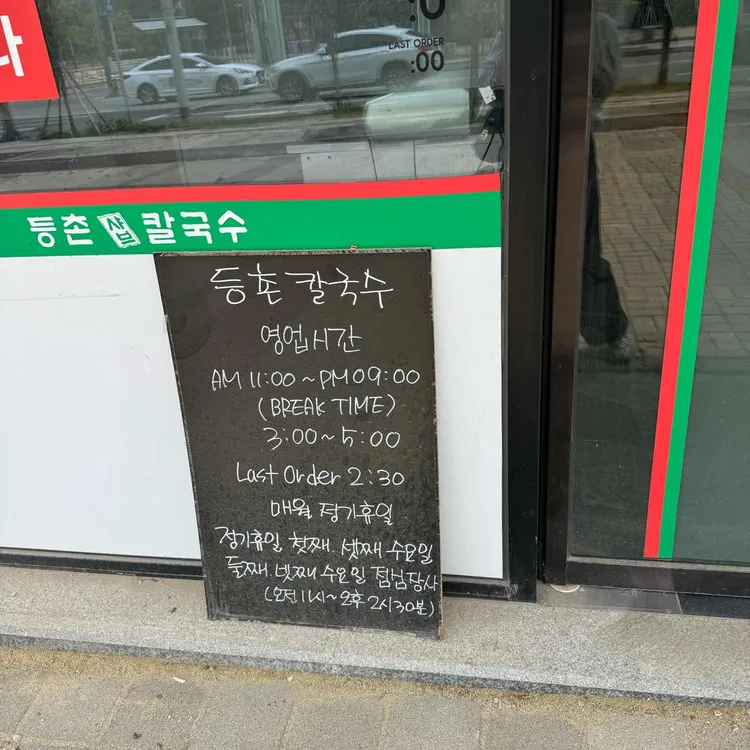 나
:0
LAST ORDER
:00
등촌 샵 칼국수
등촌 칼국수
영업시간
AM 11:00 ~ PM 09:00
(BREAK TIME)
3:00 ~ 5:00
Last Order 2:30
매월 정기휴일
정기휴일 첫째. 셋째 수요일
둘째. 넷째 수요일 점심장사
(오전 11시 ~ 오후 2시 30분)